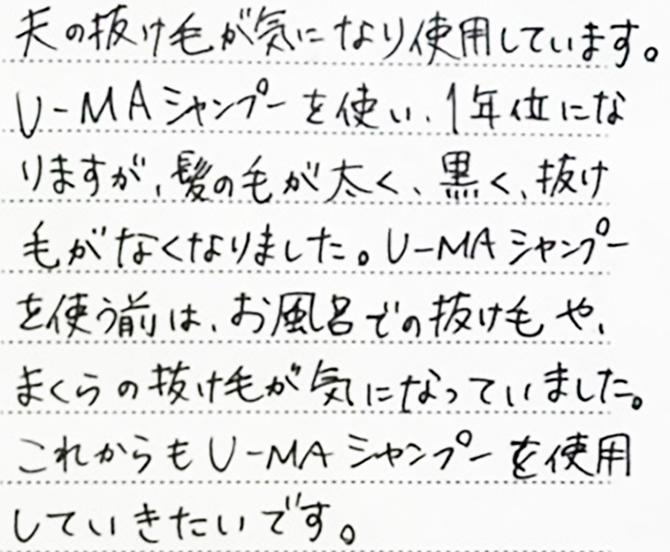 夫の抜け毛が気になり使用しています。
U-MAシャンプーを使い、1年位にな
りますが、髪の毛が太く、黒く、抜け
毛がなくなりました。U-MAシャンプー
を使う前は、お風呂での抜け毛や、
まくらの抜け毛が気になっていました。
これからもU-MAシャンプーを使用
していきたいです。